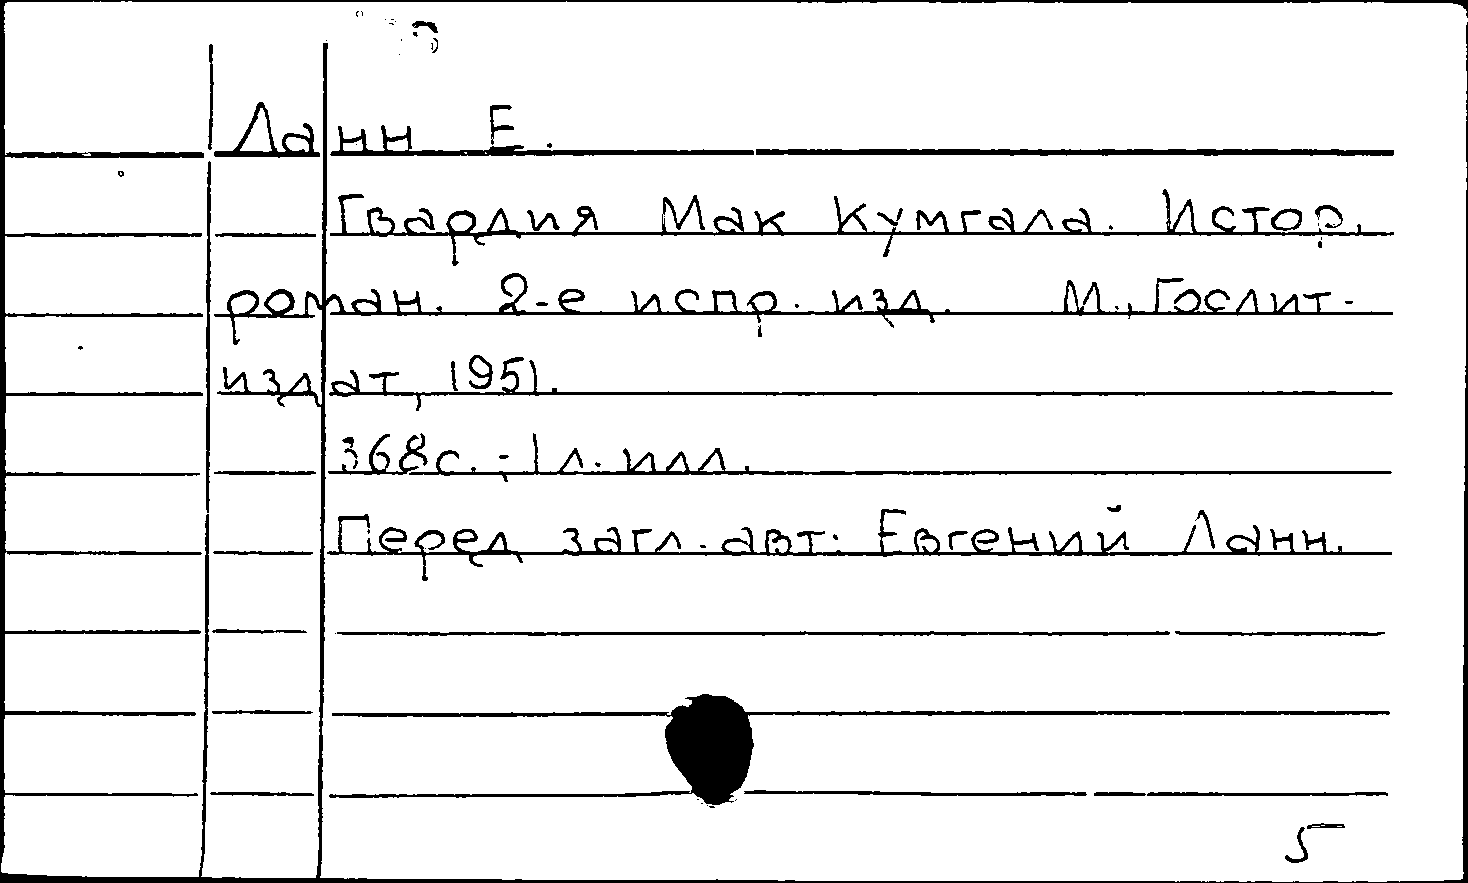 Ланн Е.
Гвардия Мак Кумгала. Истор.
роман. 2-е испр. изд. М., Гослит-
издат, 1951.
368с.; 1 л. илл.
Перед загл. авт: Евгений Ланн.
5